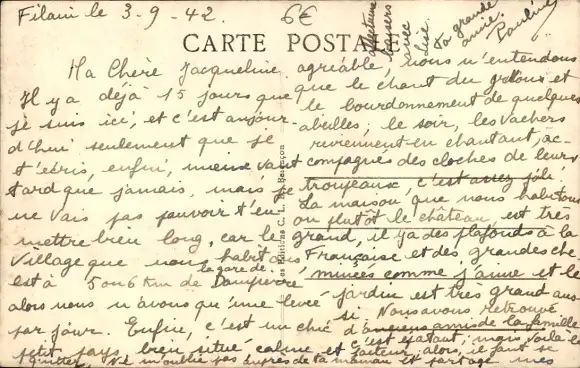 Filain le 3-9-42.
6€
CARTE POSTALE
Ma Chère Jacqueline
Il y a déjà 15 jours que
je suis ici, et c'est aujour-
d'hui seulement que je
t'écris, enfin, mieux vaut
tard que jamais, mais je
ne vais pas pouvoir t'en
mettre bien long, car le
village que nous habitons
est à 5 ou 6 km de la gare de Dampierre
alors nous n'avons qu'une levée
par jour. Enfin, c'est un chic
petit pays, bien situé, calme et
agréable, nous n'entendons
que le chant du grillons et
le bourdonnement de quelques
abeilles; le soir, les vachers
reviennent en chantant, ac-
compagnés des cloches de leurs
troupeaux, c'est assez joli.
La maison que nous habitons
ou plutôt le château, est très
grand, il y a des plafonds à la
Française et des grandes che-
minées comme j'aime et le
jardin est très grand aus-
si. Nous avons retrouvé
d'anciens amis de la famille
c'est épatant, mais voilà le
facteur, alors, il faut se
quitter, ne m'oublie pas auprès de ta maman et partage mes
affectueux
baisers
avec
Lise.
Ta grande
amie.
Pauline